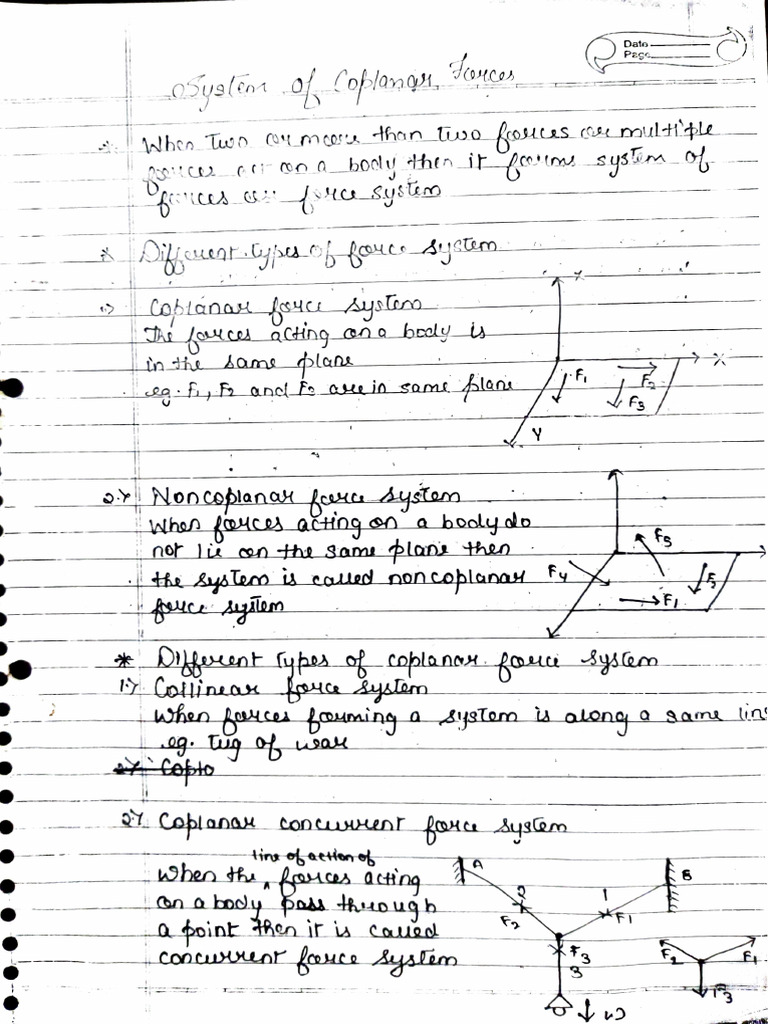 Date
Page
System of Coplanar Forces
When two or more than two forces or multiple
forces act on a body then it forms system of
forces or force system
* Different types of force system
1.) Coplanar force system
The forces acting on a body is
in the same plane
eg. F1, F2 and F3 are in same plane
X
F1
F2
F3
Y
2.) Noncoplanar force system
When forces acting on a body do
not lie on the same plane then
the system is called noncoplanar
force system
F4
F1
* Different types of coplanar force system
1.) Collinear force system
When forces forming a system is along a same line
eg. tug of war
2.) Coplanar concurrent force system
When the line of action of forces acting
on a body pass through
a point then it is called
concurrent force system
A
B
2
1
F2
F1
F3
3
F2
F1
F3